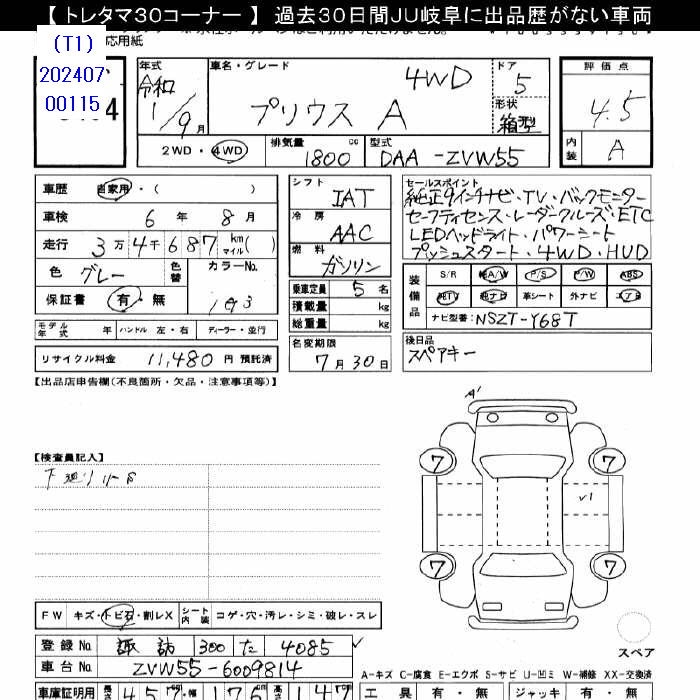 【 トレタマ30コーナー 】 過去30日間JU岐阜に出品歴がない車両
(T1)
応用紙
202407
00115
4
年式
令和
1/9月
車名・グレード
4WD
プリウス A
ドア
5
形状
箱型
評価点
4.5
内装
A
2WD・4WD
排気量
1800 cc
型式
DAA-ZVW55
車歴 自家用・( )
車検 6年 8月
走行 3万4千687 km マイル( )
色 グレー
色替
カラーNo.
1G3
保証書 有・無
モデル年式 年 ハンドル 左・右 ディーラー・並行
リサイクル料金 11,480 円 預託済
シフト
IAT
冷房
AAC
燃料
ガソリン
乗車定員 5 名
積載量 kg
総重量 kg
名変期限
7月30日
セールスポイント
純正9インチナビ・TV・バックモニター
セーフティセンス・レーダークルーズ・ETC
LEDヘッドライト・パワーシート
プッシュスタート・4WD・HUD
装備品
S/R 純A/W P/S P/W ABS
純TV 純ナビ 革シート 外ナビ エアB
ナビ型番: NSZT-Y68T
後日品
スペアキー
【出品店申告欄(不良箇所・欠品・注意事項等)】
【検査員記入】
下廻りサビ
A1
7
7
√1
7
7
スペア
FW キズ・トビ石・割レX シート内装 コゲ・穴・汚レ・シミ・破レ・スレ
登録No 諏訪 300 た 4085
車台No ZVW55-6009814
A-キズ C-腐食 E-エクボ S-サビ U-凹ミ W-補修 XX-交換済
車庫証明用 長さ 457 幅 176 147
工具 有・無 ジャッキ 有・無